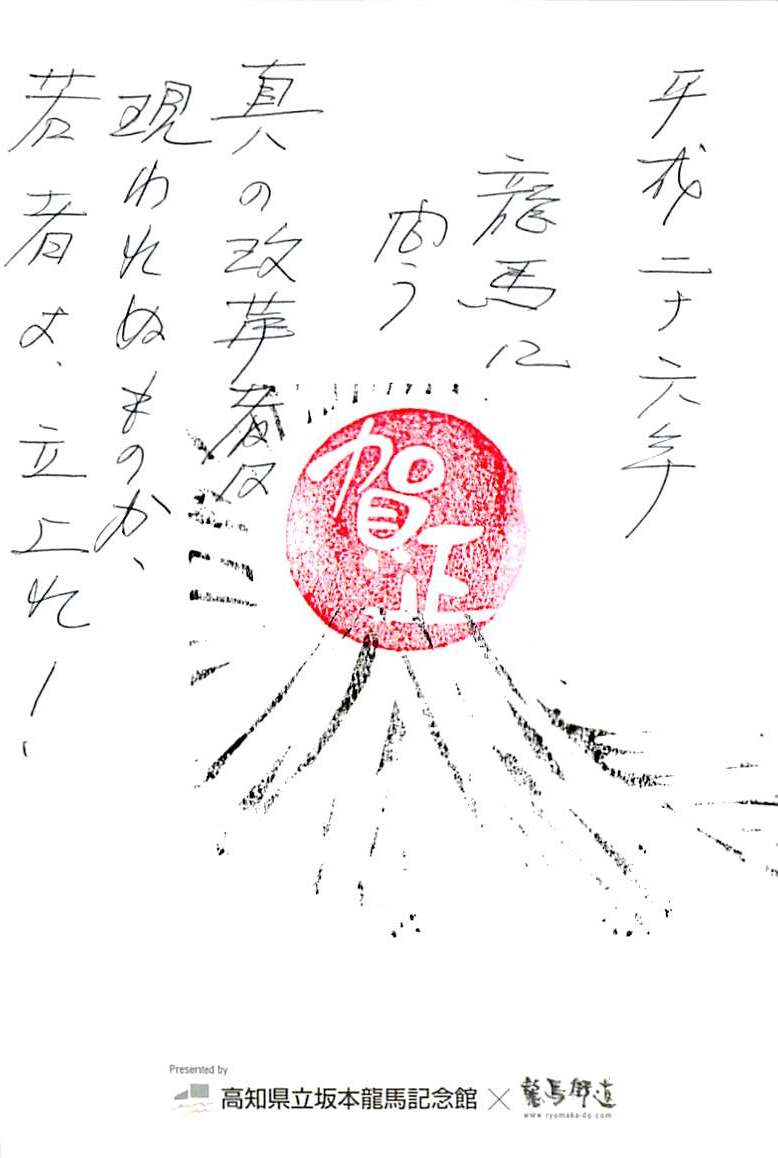 平成二十六年
龍馬に
問う
真の改革者は
現われぬものか、
若者よ、立上れ!
賀正
Presented by
高知県立坂本龍馬記念館 × 龍馬街道
www.ryomaka-do.com